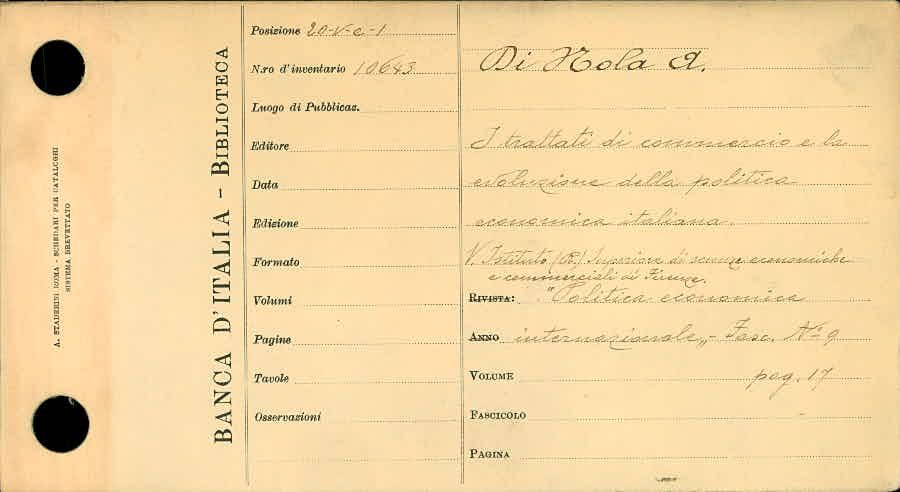 A. STADERINI ROMA - SCHEDARI PER CATALOGHI
SISTEMA BREVETTATO
BANCA D'ITALIA - BIBLIOTECA
Posizione 20-V-c-1
N.ro d'inventario 10643
Luogo di Pubblicaz.
Editore
Data
Edizione
Formato
Volumi
Pagine
Tavole
Osservazioni
Di Nola A.
I trattati di commercio e la
evoluzione della politica
economica italiana.
V. Istituto (R.) Superiore di scienze economiche
e commerciali di Firenze.
RIVISTA: "Politica economica
ANNO internazionale„ - Fasc. N° 9
VOLUME pag. 17
FASCICOLO
PAGINA